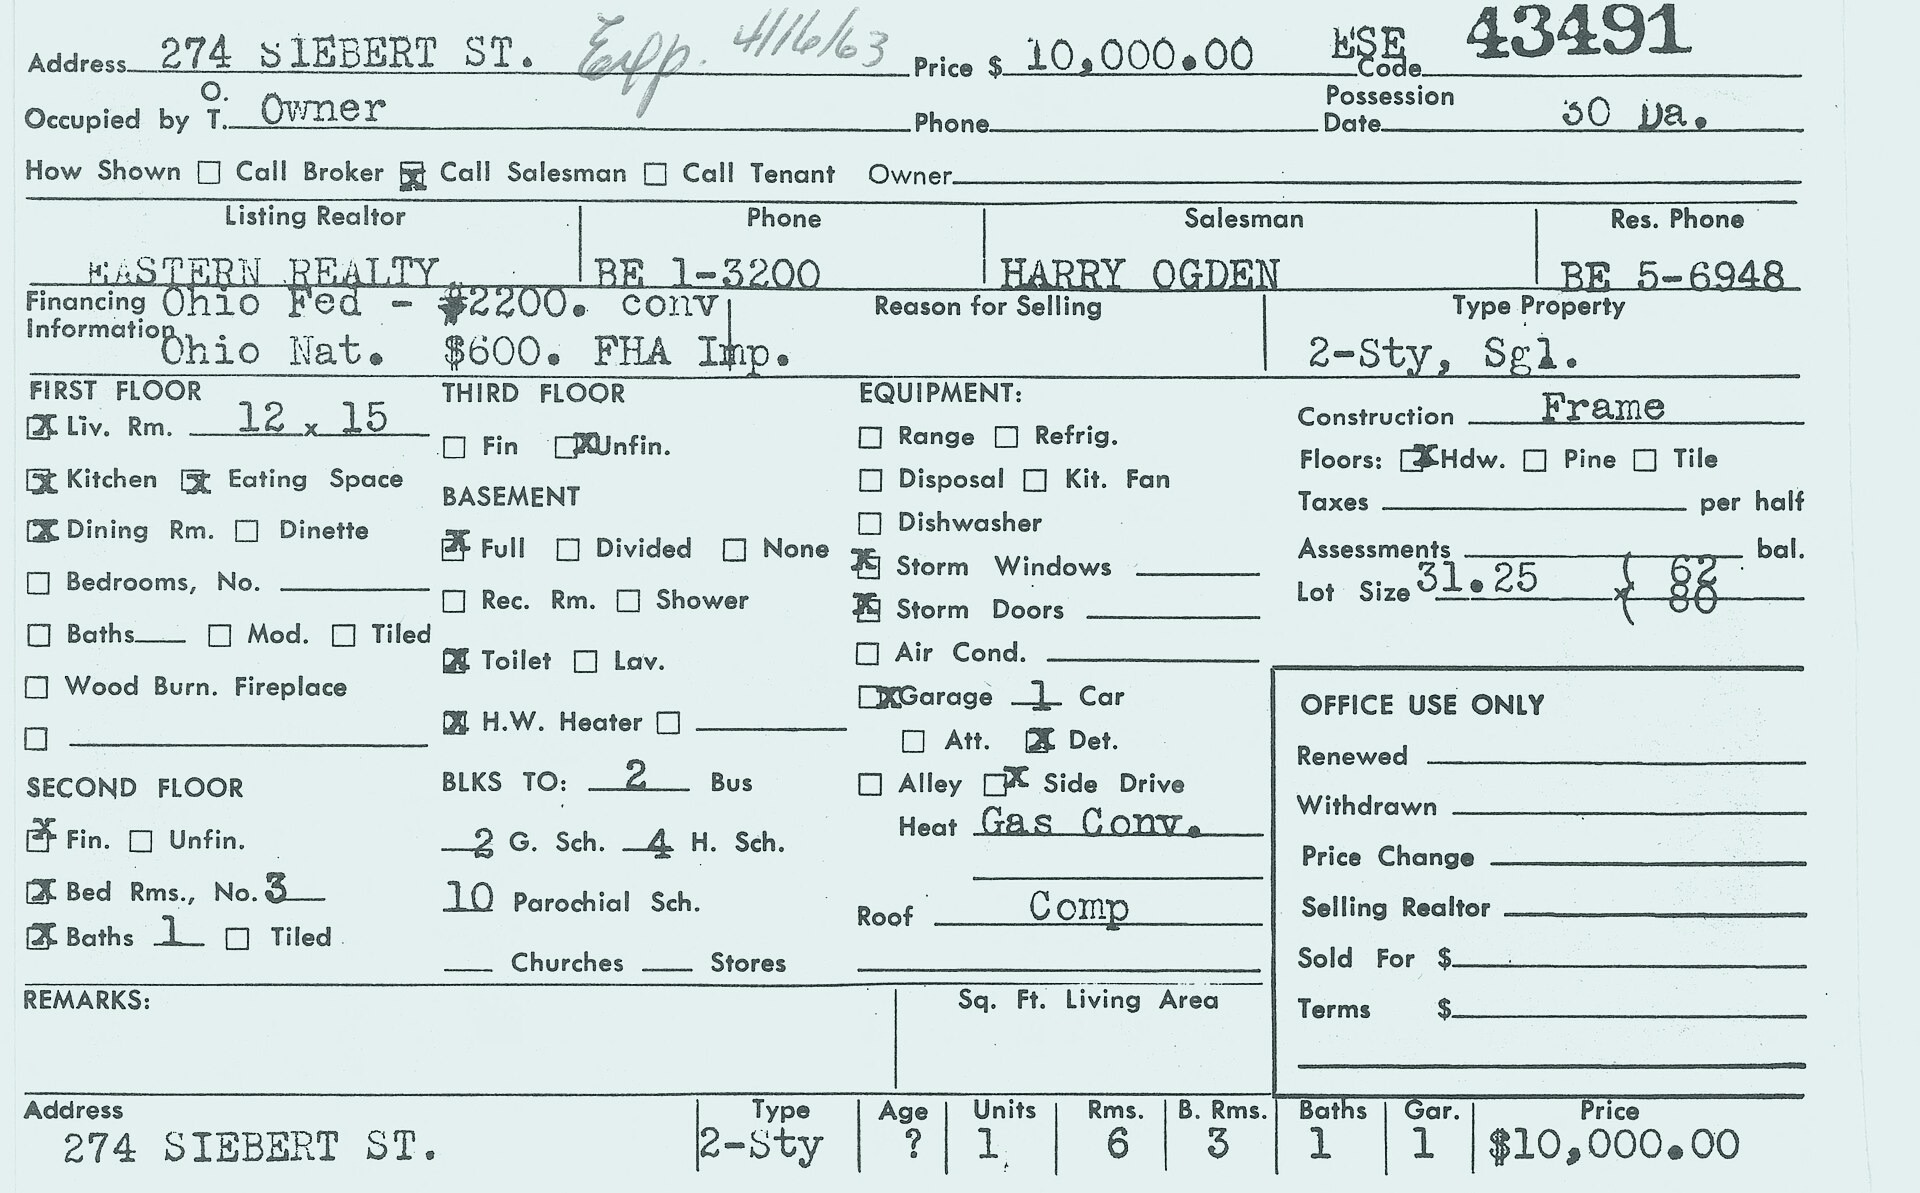 Address 274 SIEBERT ST. Exp. 4/16/63 Price $ 10,000.00 ESE Code 43491
Occupied by O. T. Owner Phone Possession Date 30 Da.
How Shown ☐ Call Broker ☒ Call Salesman ☐ Call Tenant Owner
Listing Realtor Phone Salesman Res. Phone
EASTERN REALTY BE 1-3200 HARRY OGDEN BE 5-6948
Financing Information Ohio Fed - $2200. conv Reason for Selling Type Property
Ohio Nat. $600. FHA Imp. 2-Sty, Sgl.
FIRST FLOOR
☒ Liv. Rm. 12 x 15
☒ Kitchen ☒ Eating Space
☒ Dining Rm. ☐ Dinette
☐ Bedrooms, No.
☐ Baths ☐ Mod. ☐ Tiled
☐ Wood Burn. Fireplace
☐
SECOND FLOOR
☒ Fin. ☐ Unfin.
☒ Bed Rms., No. 3
☒ Baths 1 ☐ Tiled
THIRD FLOOR
☐ Fin ☒ Unfin.
BASEMENT
☒ Full ☐ Divided ☐ None
☐ Rec. Rm. ☐ Shower
☒ Toilet ☐ Lav.
☒ H.W. Heater ☐
BLKS TO: 2 Bus
2 G. Sch. 4 H. Sch.
10 Parochial Sch.
Churches Stores
EQUIPMENT:
☐ Range ☐ Refrig.
☐ Disposal ☐ Kit. Fan
☐ Dishwasher
☒ Storm Windows
☒ Storm Doors
☐ Air Cond.
☒ Garage 1 Car
☐ Att. ☒ Det.
☐ Alley ☒ Side Drive
Heat Gas Conv.
Roof Comp
Construction Frame
Floors: ☒ Hdw. ☐ Pine ☐ Tile
Taxes per half
Assessments bal.
Lot Size 31.25 x ( 62
( 86
OFFICE USE ONLY
Renewed
Withdrawn
Price Change
Selling Realtor
Sold For $
Terms $
REMARKS: Sq. Ft. Living Area
Address Type Age Units Rms. B. Rms. Baths Gar. Price
274 SIEBERT ST. 2-Sty ? 1 6 3 1 1 $10,000.00